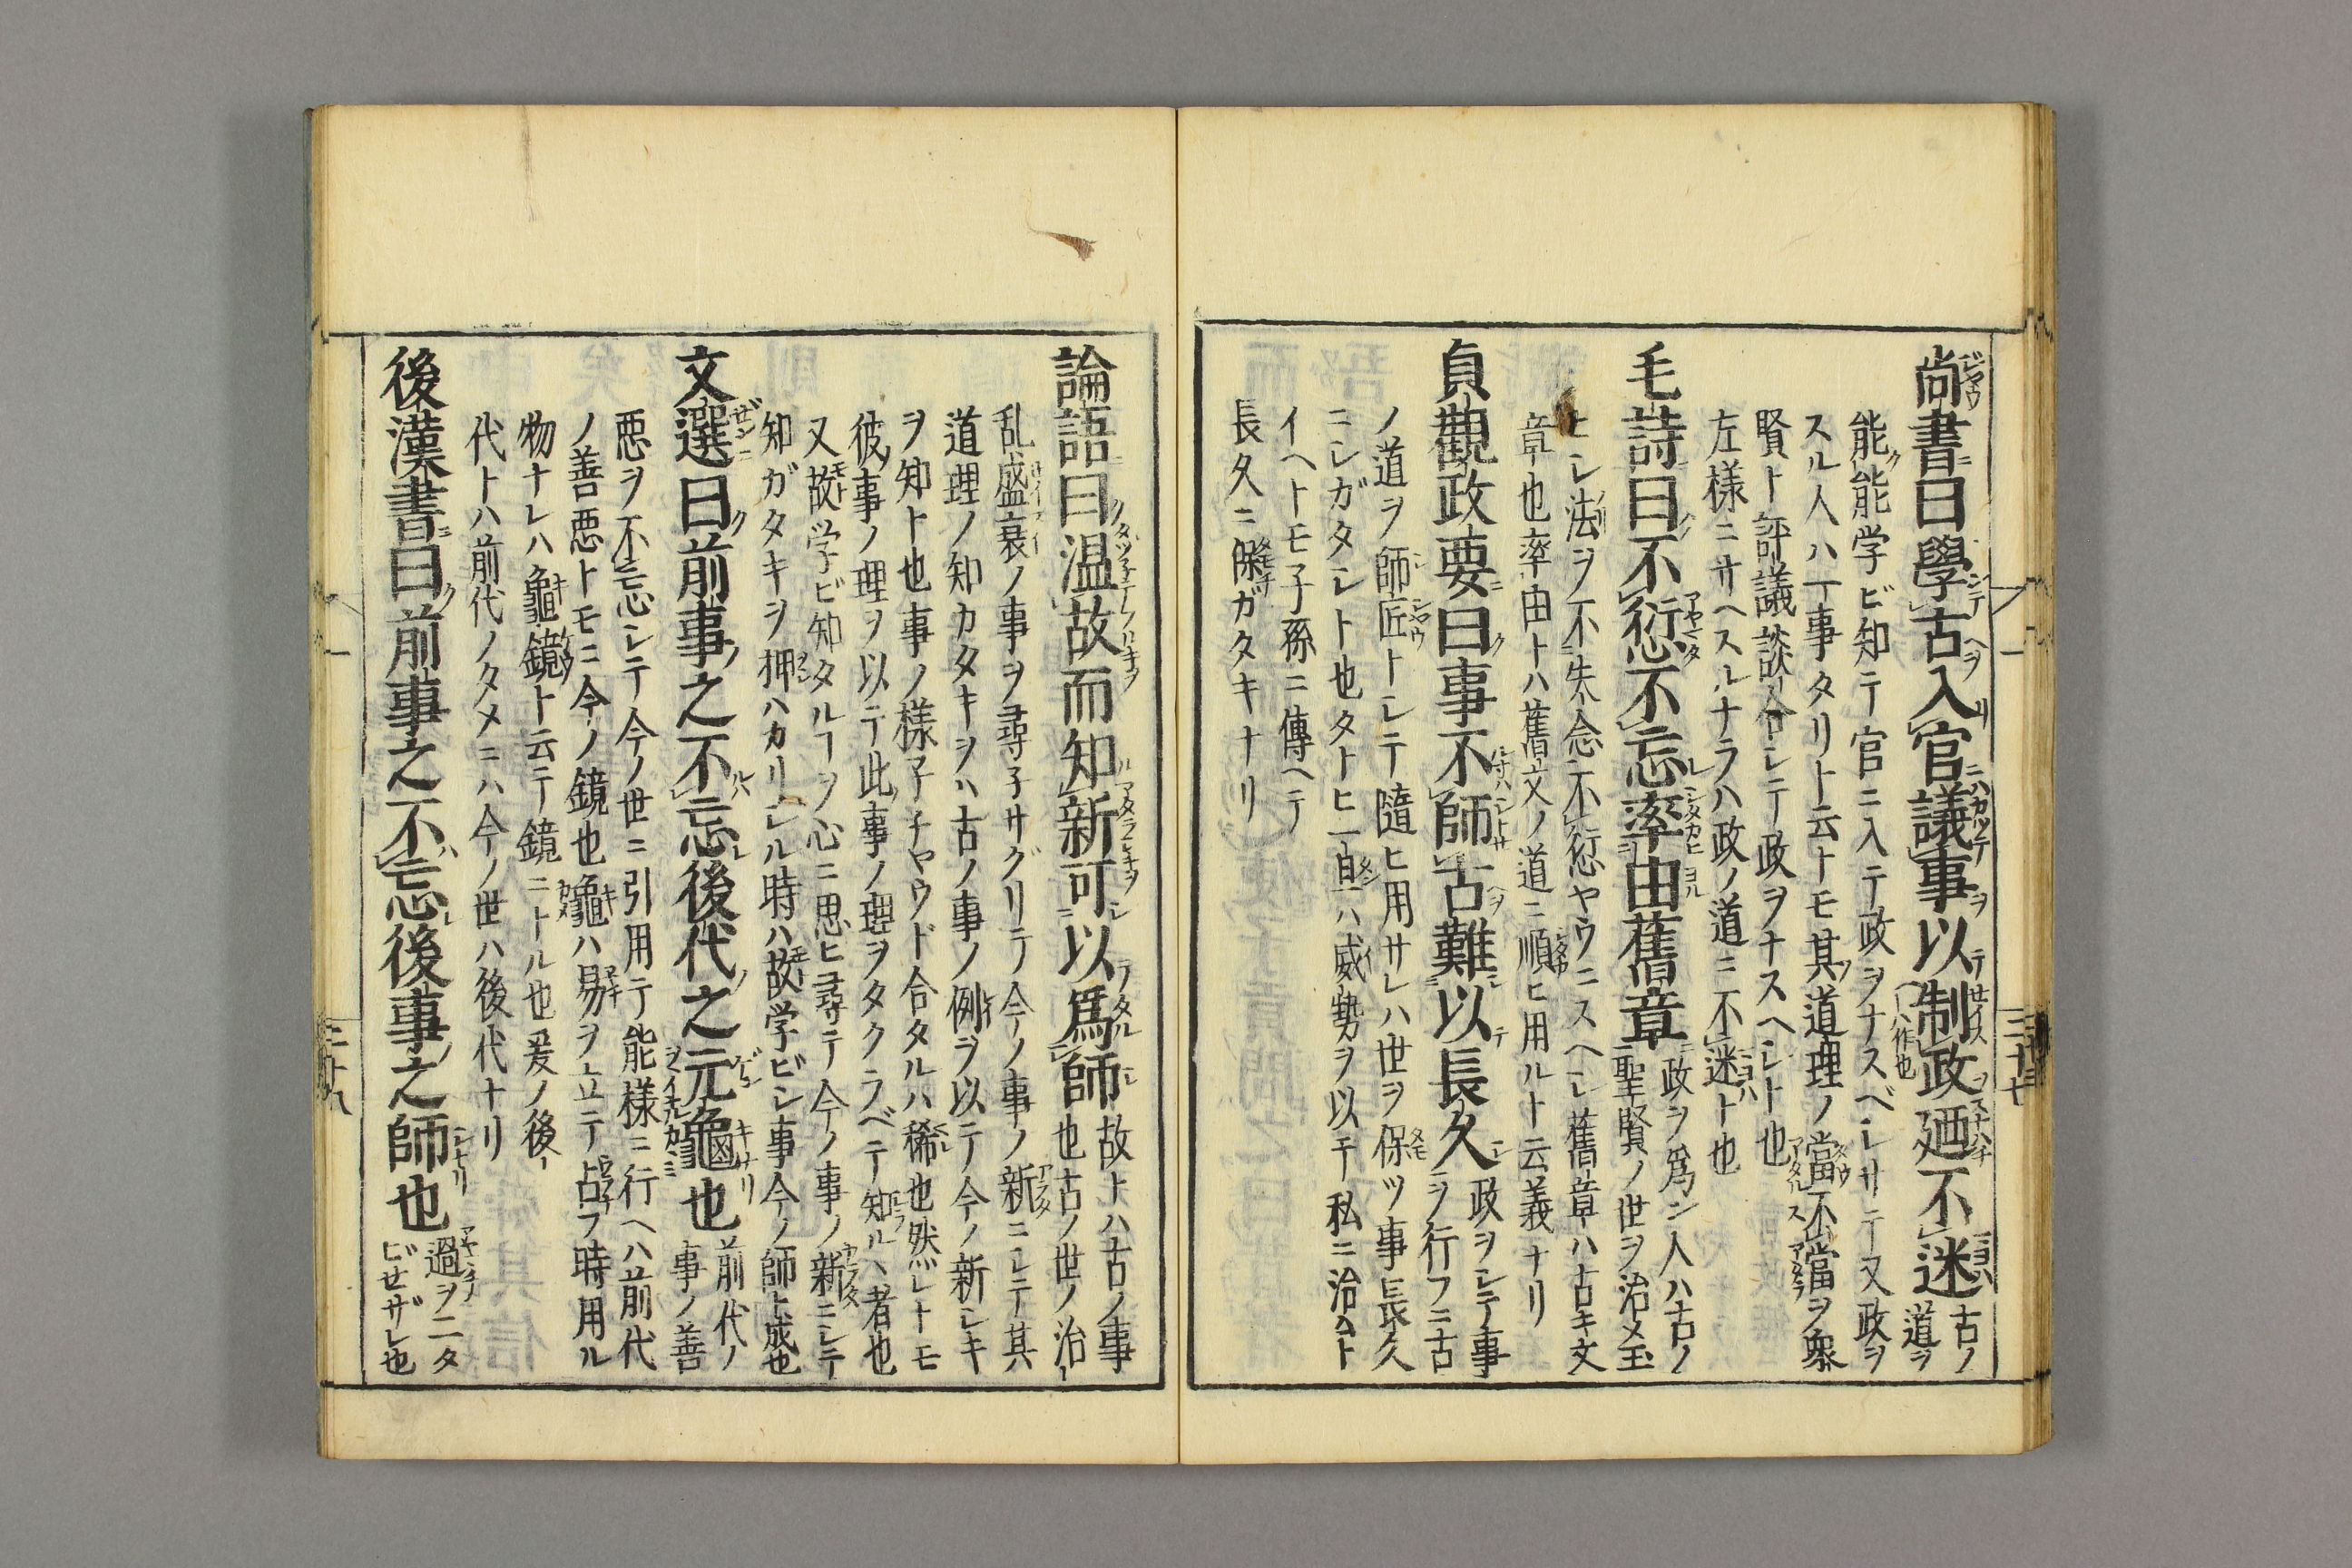 尚書曰學古入官議事以制政廼不迷古ノ道ヲ
能能学ビ知テ官ニ入テ政ヲナスベレサテ又政ヲ
スル人ハ一事タリト云トモ其道理ノ當不當ヲ衆
賢ト評議談合レテ政ヲナスヘレト也
左様ニサヘスルナラハ政ノ道ニ不迷ト也
毛詩曰不愆不忘率由舊章政ヲ爲ン人ハ古ノ聖賢ノ世ヲ治メ玉
ヒレ法ヲ不失念不愆ヤウニスヘレ舊章ハ古キ文
章也率由トハ舊文ノ道ニ順ヒ用ルト云義ナリ
貞觀政要曰事不師古難以長久政ヲレテ事ヲ行フニ古
ノ道ヲ師匠トレテ隨ヒ用サレハ世ヲ保ツ事長久
ニレガタレト也タトヒ一旦ハ威勢ヲ以テ私ニ治ムト
イヘトモ子孫ニ傳ヘテ
長久ニ保ガタキナリ
三十七
論語曰温故而知新可以爲師故トハ古ノ事也古ノ世ノ治
乱盛衰ノ事ヲ尋子サグリテ今ノ事ノ新ニレテ其
道理ノ知カタキヲハ古ノ事ノ例ヲ以テ今ノ新レキ
ヲ知ト也事ノ様子チヤウド合タルハ稀也然レトモ
彼事ノ理ヲ以テ此事ノ理ヲタクラベテ知ルハ者也
又故学ビ知タルヿヲ心ニ思ヒ尋テ今ノ事ノ新ニレテ
知ガタキヲ押ハカリレル時ハ故学ビレ事今ノ師ト成也
文選曰前事之不忘後代之元龜也前代ノ事ノ善
悪ヲ不忘レテ今ノ世ニ引用テ能様ニ行ヘハ前代
ノ善悪トモニ今ノ鏡也龜ハ易ヲ立テ占フ時用ル
物ナレハ龜鏡ト云テ鏡ニトル也爰ノ後
代トハ前代ノタメニハ今ノ世ハ後代ナリ
後漢書曰前事之不忘後事之師也過ヲ二タビせザレ也
三十八